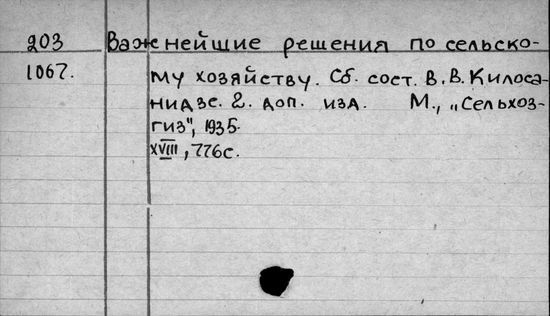 203 Важнейшие решения по сельско-
1067. му хозяйству. Сб. сост. В. В. Килоса-
нидзе. 2. доп. изд. М., „Сельхоз-
гиз", 1935.
XVIII, 776с.